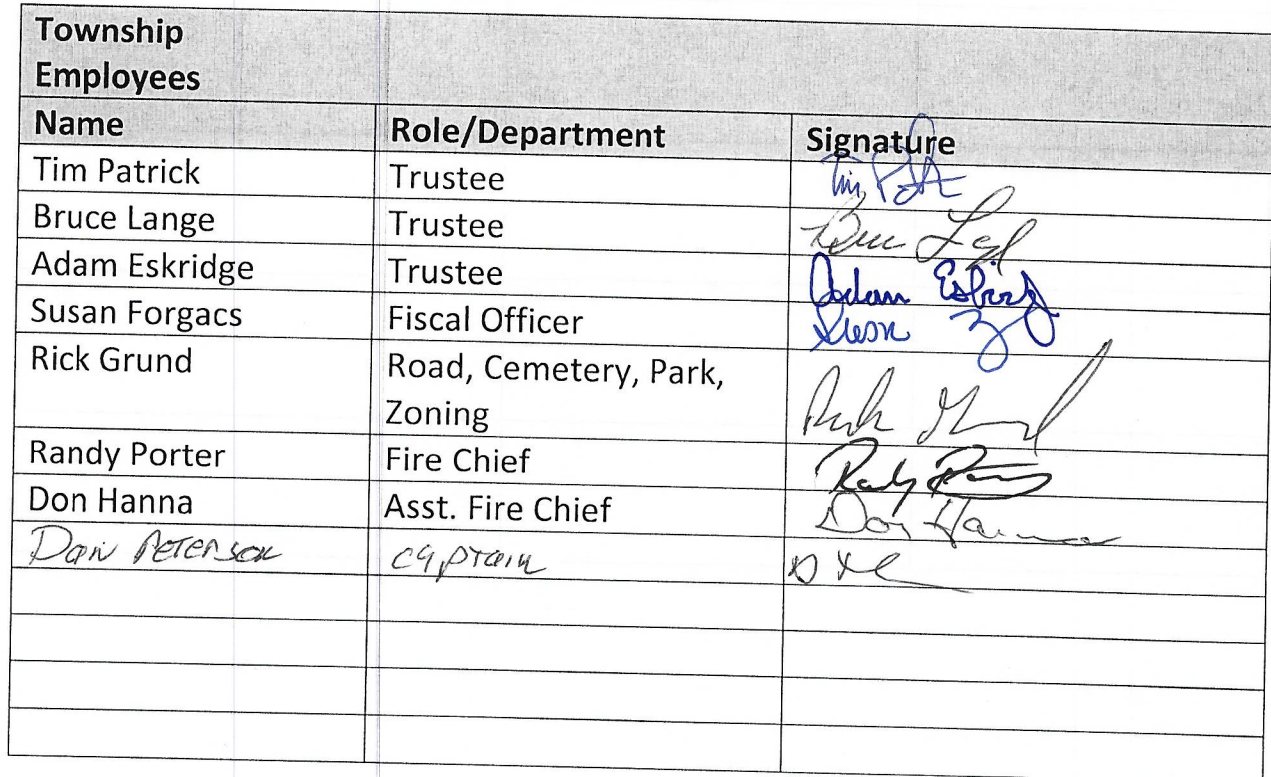 Township
Employees
Name Role/Department Signature
Tim Patrick Trustee Tim Pat
Bruce Lange Trustee
Adam Eskridge Trustee Adam
Susan Forgacs Fiscal Officer Susan
Rick Grund Road, Cemetery, Park,
Zoning
Randy Porter Fire Chief Randy
Don Hanna Asst. Fire Chief Don Hanna
Dan Peterson Captain